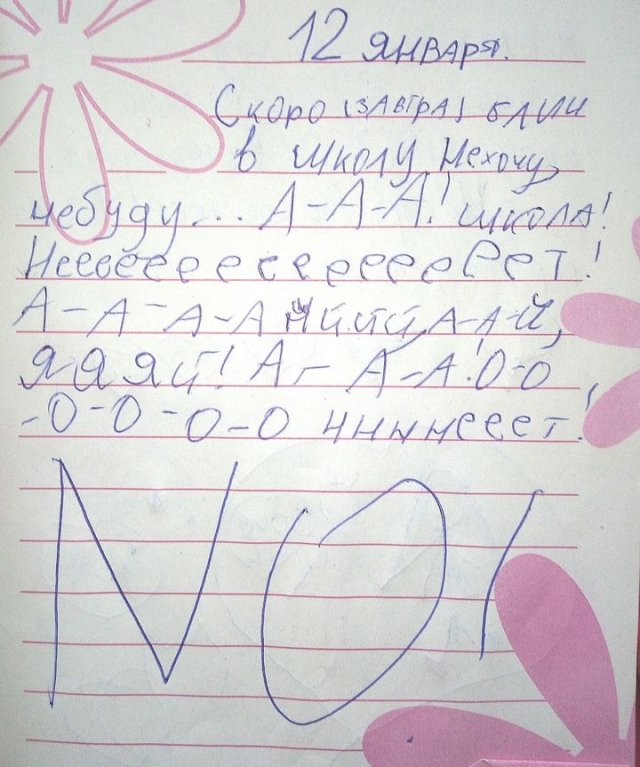 12 января.
Скоро (завтра) блин
в школу Нехочу,
небуду... А-А-А! школа!
Неееёеееееееееееет!
А-А-А-А йййй, А-А-Й,
Я-Я Яй! А-А-А! О-О
-О-О-О-О ннннееет!
NO!